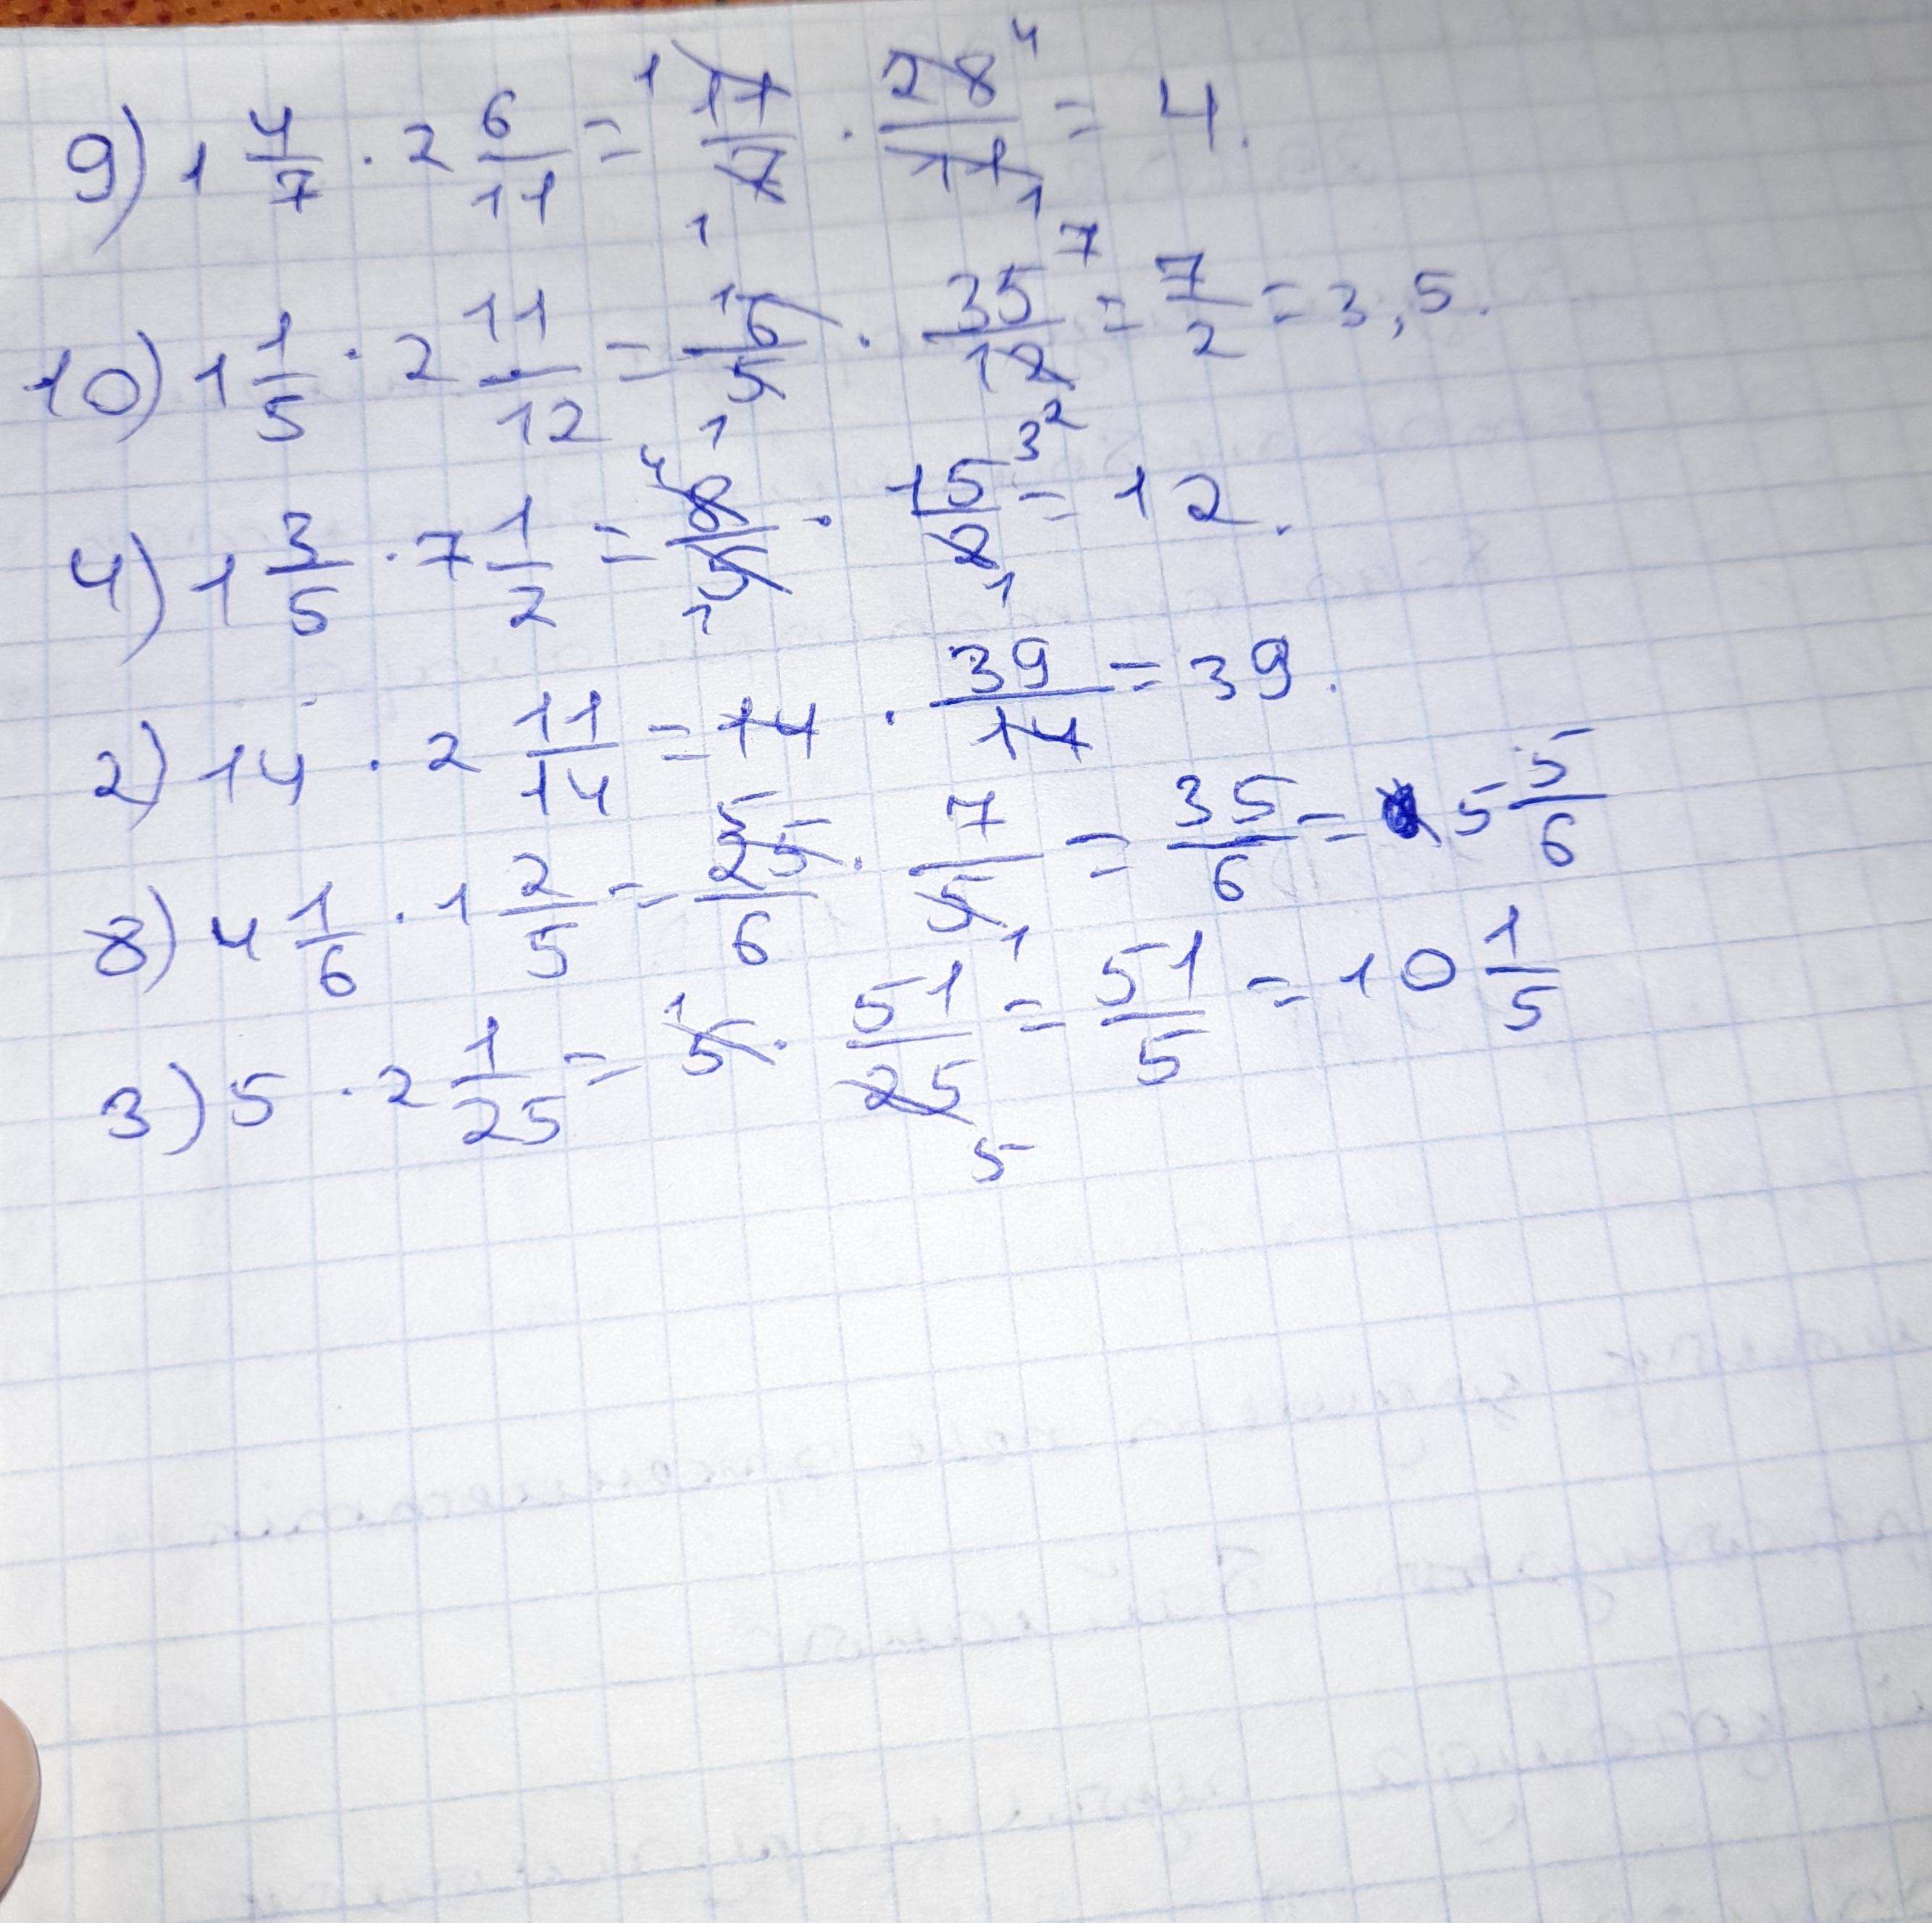 9) 1 4/7 · 2 6/11 = 1 11/7 1 · 28 4/11 1 = 4.
10) 1 1/5 · 2 11/12 = 1 6/5 1 · 35 7/12 2 = 7/2 = 3,5.
4) 1 3/5 · 7 1/2 = 4 8/5 1 · 15 3/2 1 = 12.
2) 14 · 2 11/14 = 14 · 39/14 = 39.
8) 4 1/6 · 1 2/5 = 5 25/6 · 7/5 1 = 35/6 = 5 5/6
3) 5 · 2 1/25 = 1 5 · 51/25 5 = 51/5 = 10 1/5